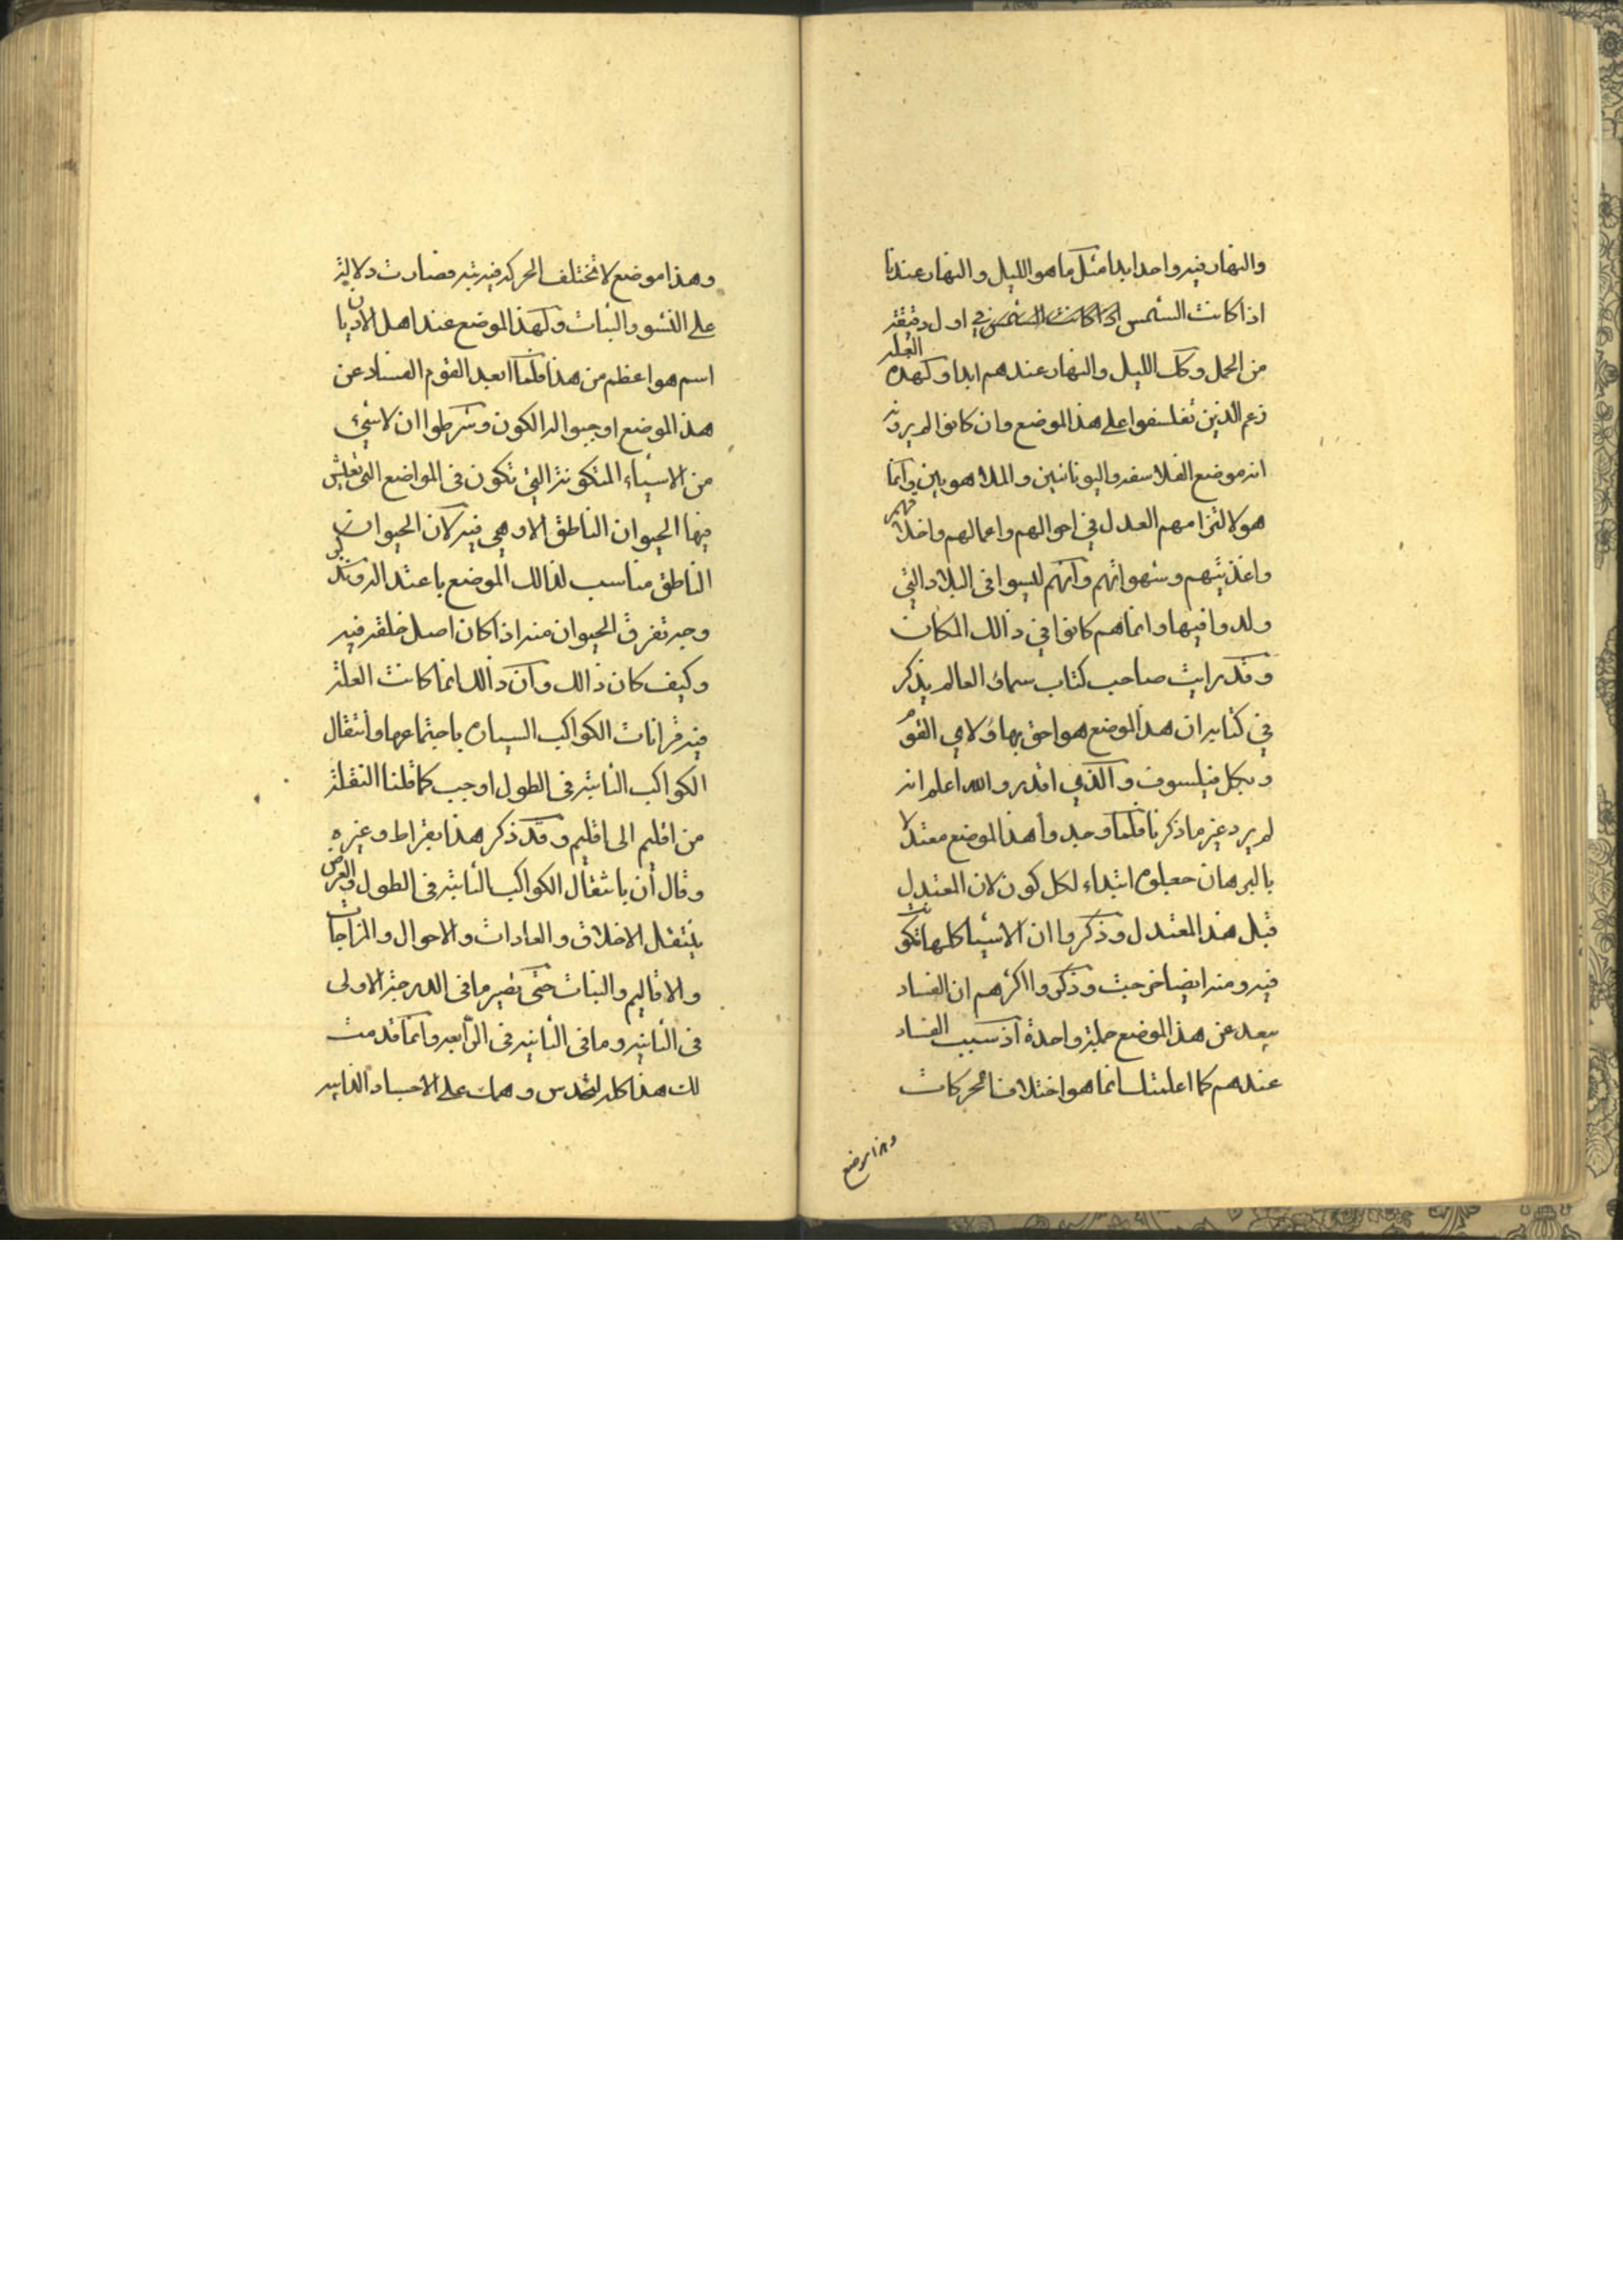 والنهار فيه واحد ابدا مثل ما هو الليل والنهار عندنا
اذا كانت الشمس اذا كانت الشمس في اول دقيقة
من الحمل وكل الليل والنهار عندهم ابدا ولهذه العلة
زعم الذين تفلسفوا على هذ الموضع وان كانوا لم يرونه
انه موضع الفلاسفه واليونانيين والملاهويين وانما
هولا لتزامهم العدل في احوالهم واعمالهم واخلاقهم
واغذيتهم وشهواتهم وانهم ليسوا في البلاد التي
ولدوا فيها وانما هم كانوا في ذالك المكان
وقد رايت صاحب كتاب سماء العالم يذكر
في كتابه ان هذ الموضع هو احق بهاولاهي القوم
وبكل فيلسوف والذي اقدر والله اعلم انه
لم يرد غير ما ذكرنا فلما وجدوا هذ الموضع معتدلا
بالبرهان جعلوه ابتداء لكل كون لان المعتدل
قبل هذ المعتدل وذكروا ان الاشيا كلها تكونت
فيه ومنه ايضا خرجت وذكروا اكثرهم ان الفساد
يبعد عن هذ الموضع جملة واحدة اذ سبب الفساد
عندهم كما اعلمتك انما هو اختلاف الحركات
وهذا موضع
وهذا موضع لا تختلف الحركه فيه بته فصارت دلالته
على النشو والنبات ولهذ الموضع عند اهل الاديان
اسم هو اعظم من هذا فلما ابعد القوم الفساد عن
هذ الموضع اوجبوا له الكون وشرطوا ان لا شيء
من الاشياء المتكونة التي تكون في المواضع التي تعيش
فيها الحيوان الناطق الا وهي فيه لان الحيوان
الناطق مناسب لذالك الموضع باعتداله وتدبر
وجه تفرق الحيوان منه اذا كان اصل خلقه فيه
وكيف كان ذالك وان ذالك انما كانت العلة
فيه قرانات الكواكب السياره باجتماعها وانتقال
الكواكب الثابته في الطول اوجب كما قلنا النقلة
من اقليم الى اقليم وقد ذكر هذا بقراط وغيره
وقال ان بانتقال الكواكب الثابته في الطول والعرض
ينتقل الاخلاق والعادات والاحوال والمزاجات
والاقاليم والنبات حتى يصير ما في الدرجة الاولى
في الثانيه وما في الثانيه في الرابعه وانما قدمت
لك هذا كله لتحدس وهمك على الاجساد الذايبه